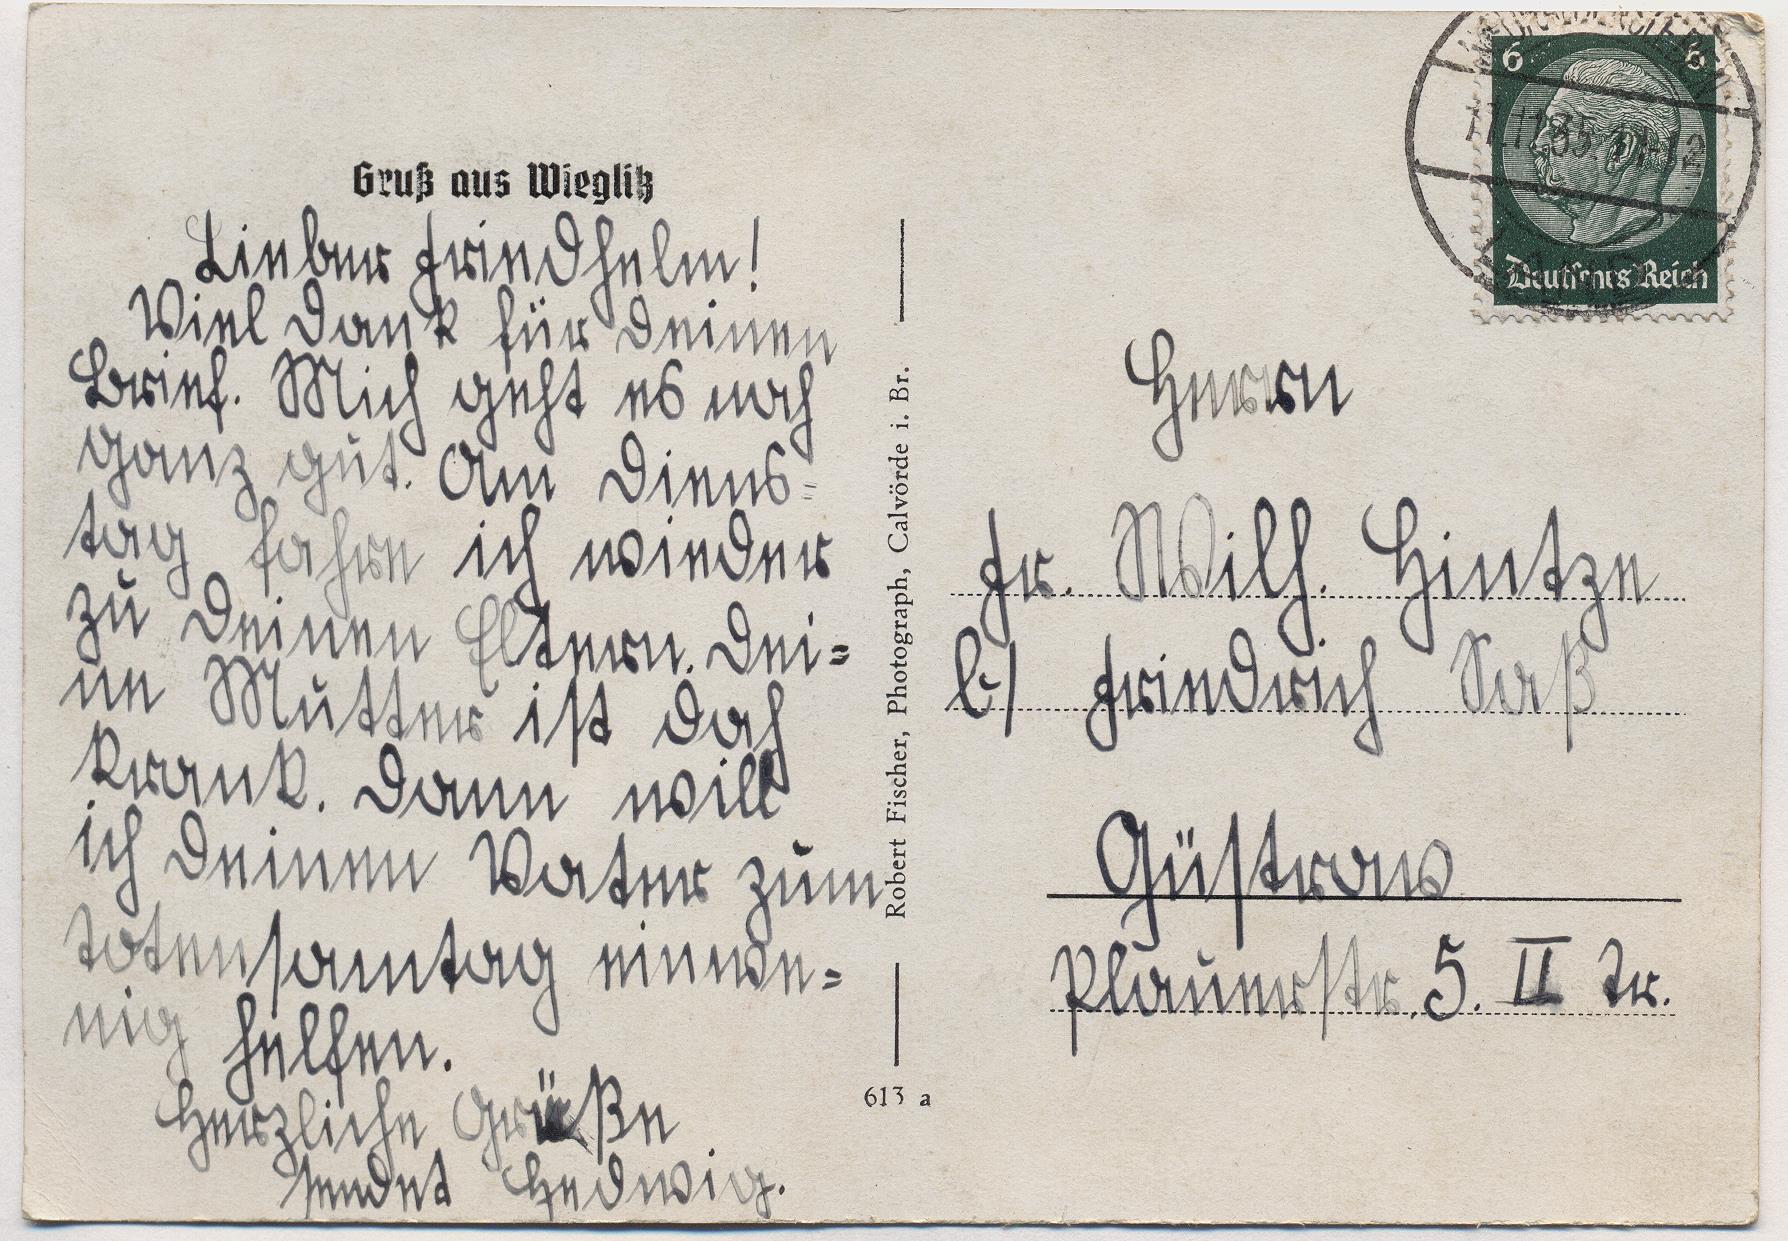 Gruß aus Wieglitz
Lieber Friedhelm!
Viel Dank für Deinen
Brief. Mich geht es noch
ganz gut. Am Diens=
tag fahre ich wieder
zu Deinen Eltern. Dei=
ne Mutter ist doch
krank. Dann will
ich Deinen Vater zum
Totensontag einwe=
nig helfen.
Herzliche Grüße
sendet Hedwig.
Robert Fischer, Photograph, Calvörde i. Br.
613 a
6 6
Deutsches Reich
Herrn
Fr. Wilh. Hintze
b/ Friedrich Saß
Güstrow
Plauerstr. 5. II Tr.